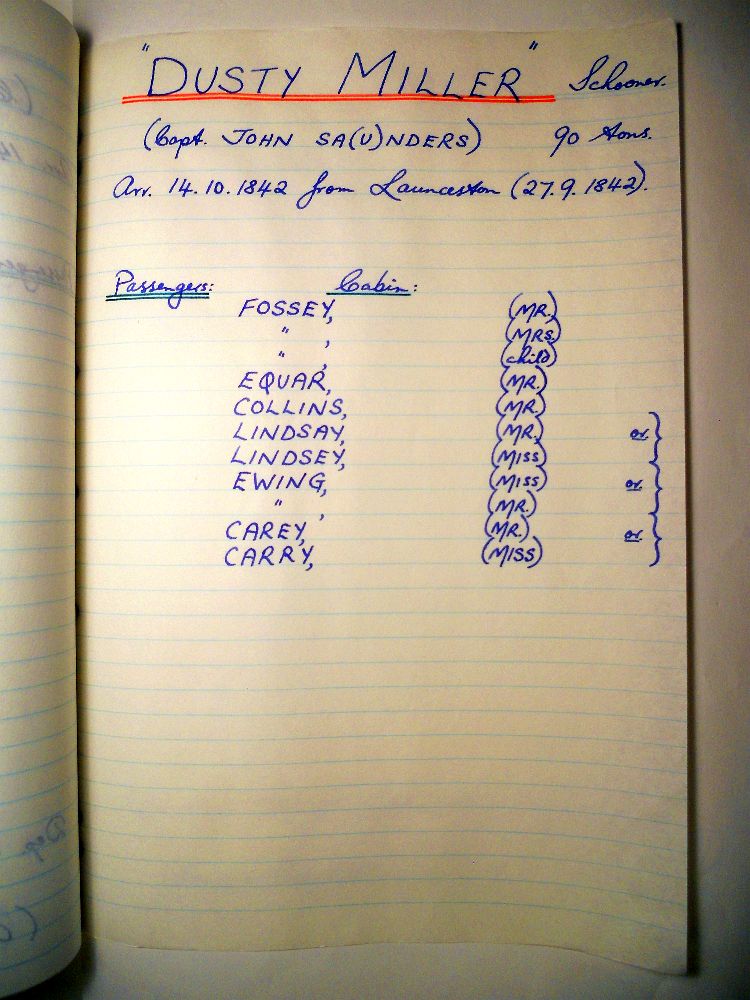 "DUSTY MILLER" Schooner.
(Capt. JOHN SA(U)NDERS) 90 tons.
Arr. 14.10.1842 from Launceston (27.9.1842).
Passengers: Cabin:
FOSSEY, (MR.)
" , (MRS.)
" , (child)
EQUAR, (MR.)
COLLINS, (MR.)
LINDSAY, (MR.) or }
LINDSEY, (MISS)
EWING, (MISS) or }
" , (MR.)
CAREY, (MR.) or }
CARRY, (MISS)